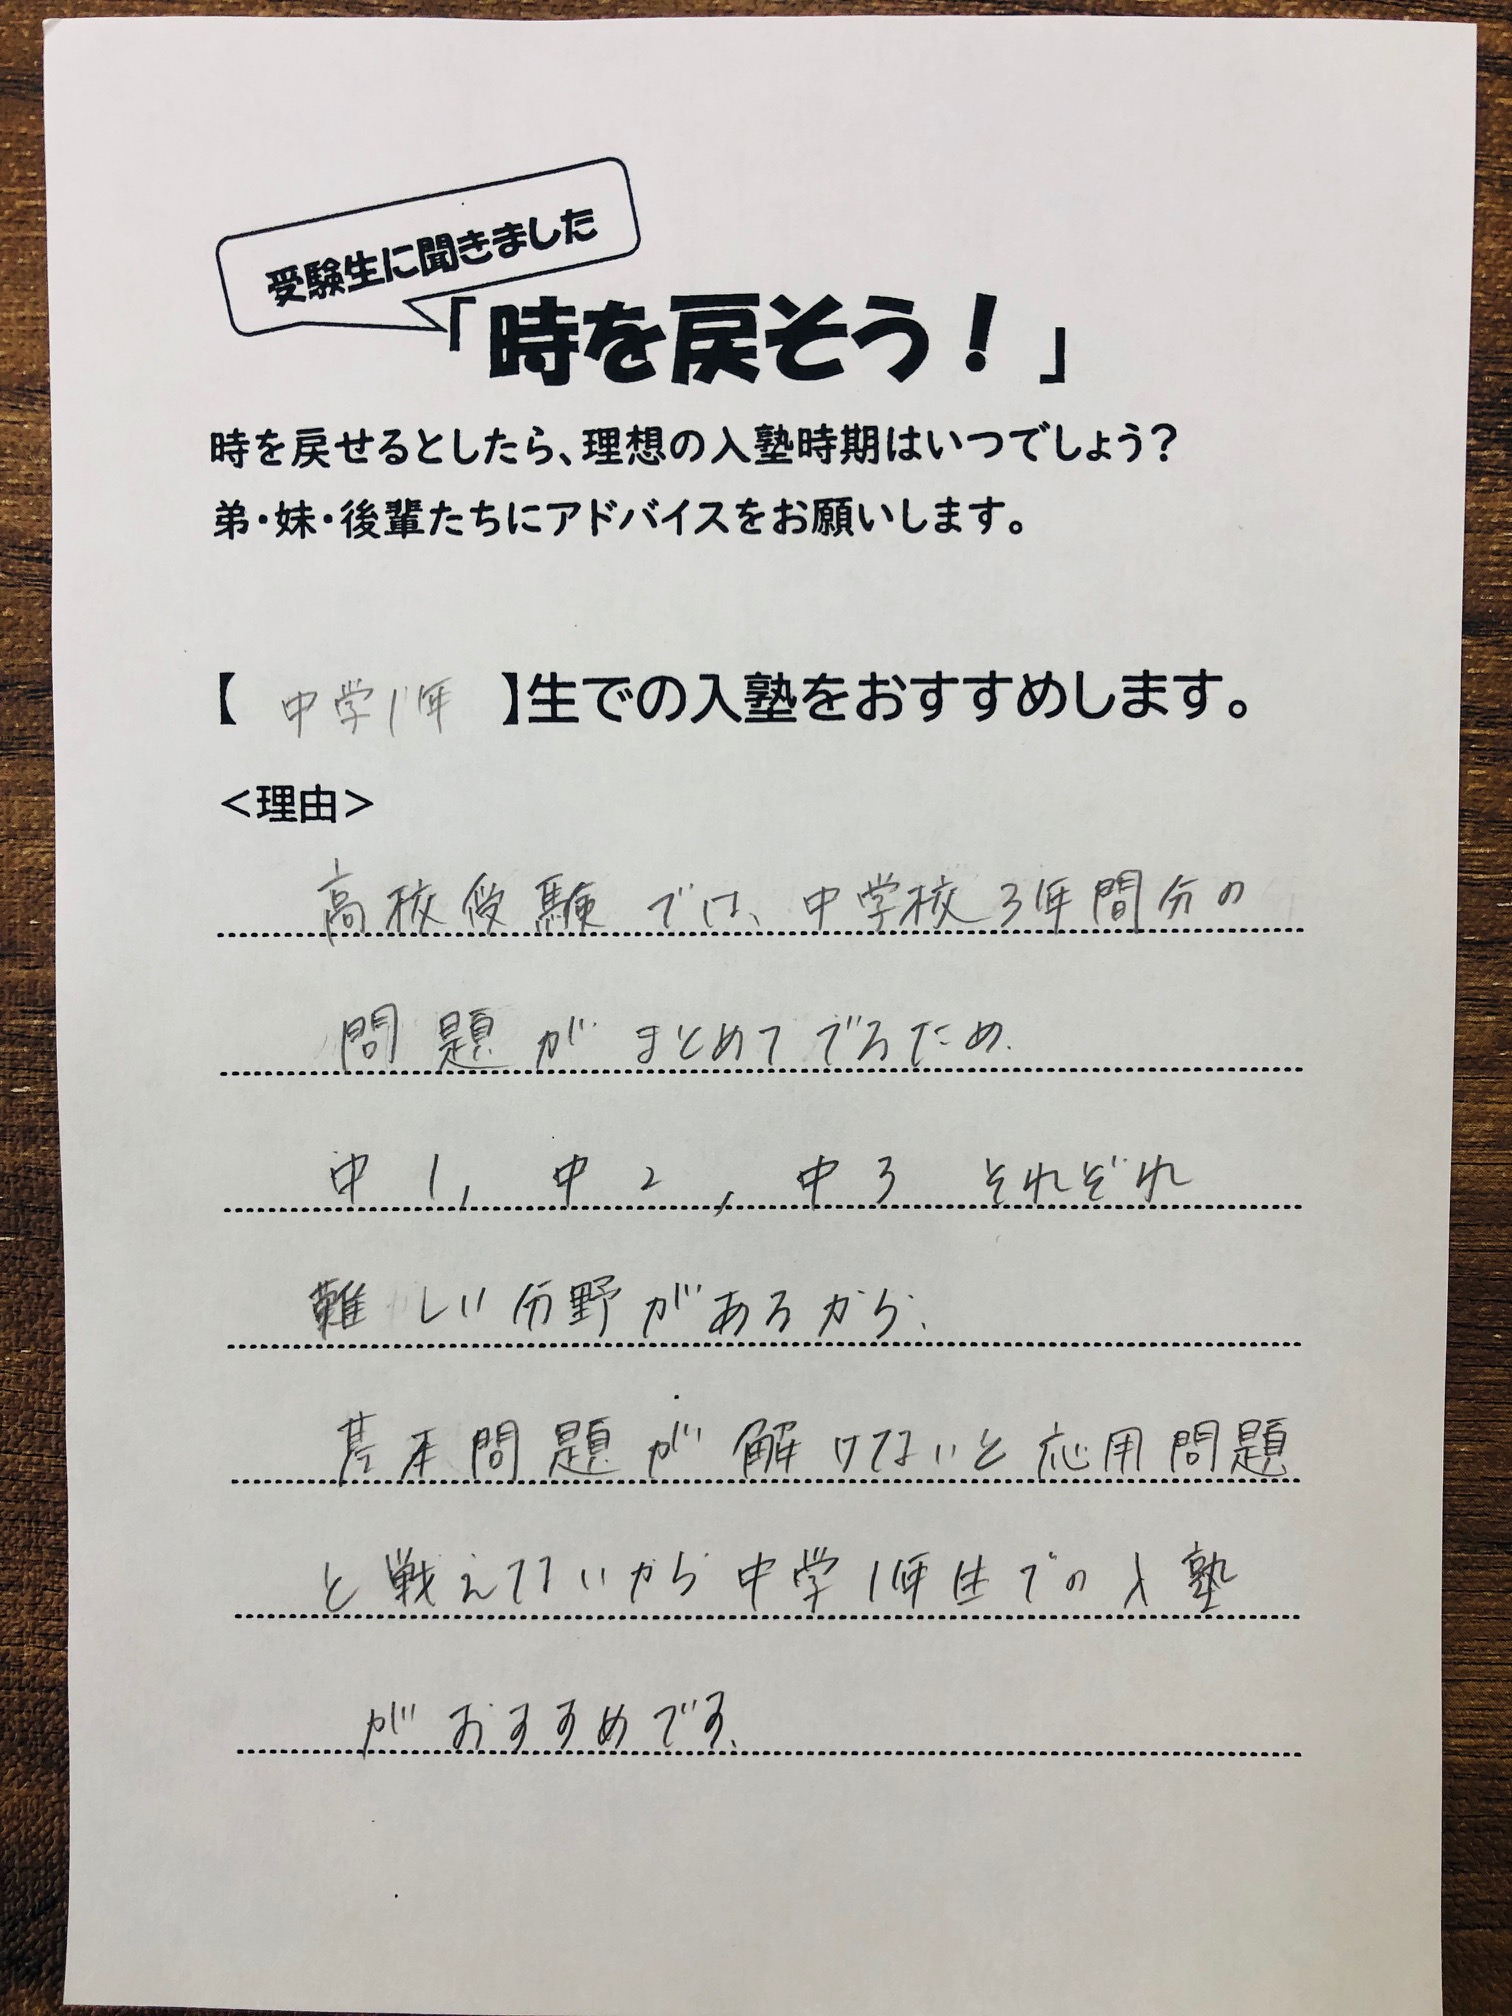 受験生に聞きました
「時を戻そう！」
時を戻せるとしたら、理想の入塾時期はいつでしょう？
弟・妹・後輩たちにアドバイスをお願いします。
【 中学1年 】生での入塾をおすすめします。
＜理由＞
高校受験では、中学校3年間分の
問題がまとめてでるため、
中1, 中2, 中3 それぞれ
難しい分野があるから、
基本問題が解けないと応用問題
と戦えないから中学1年生での入塾
がおすすめです、